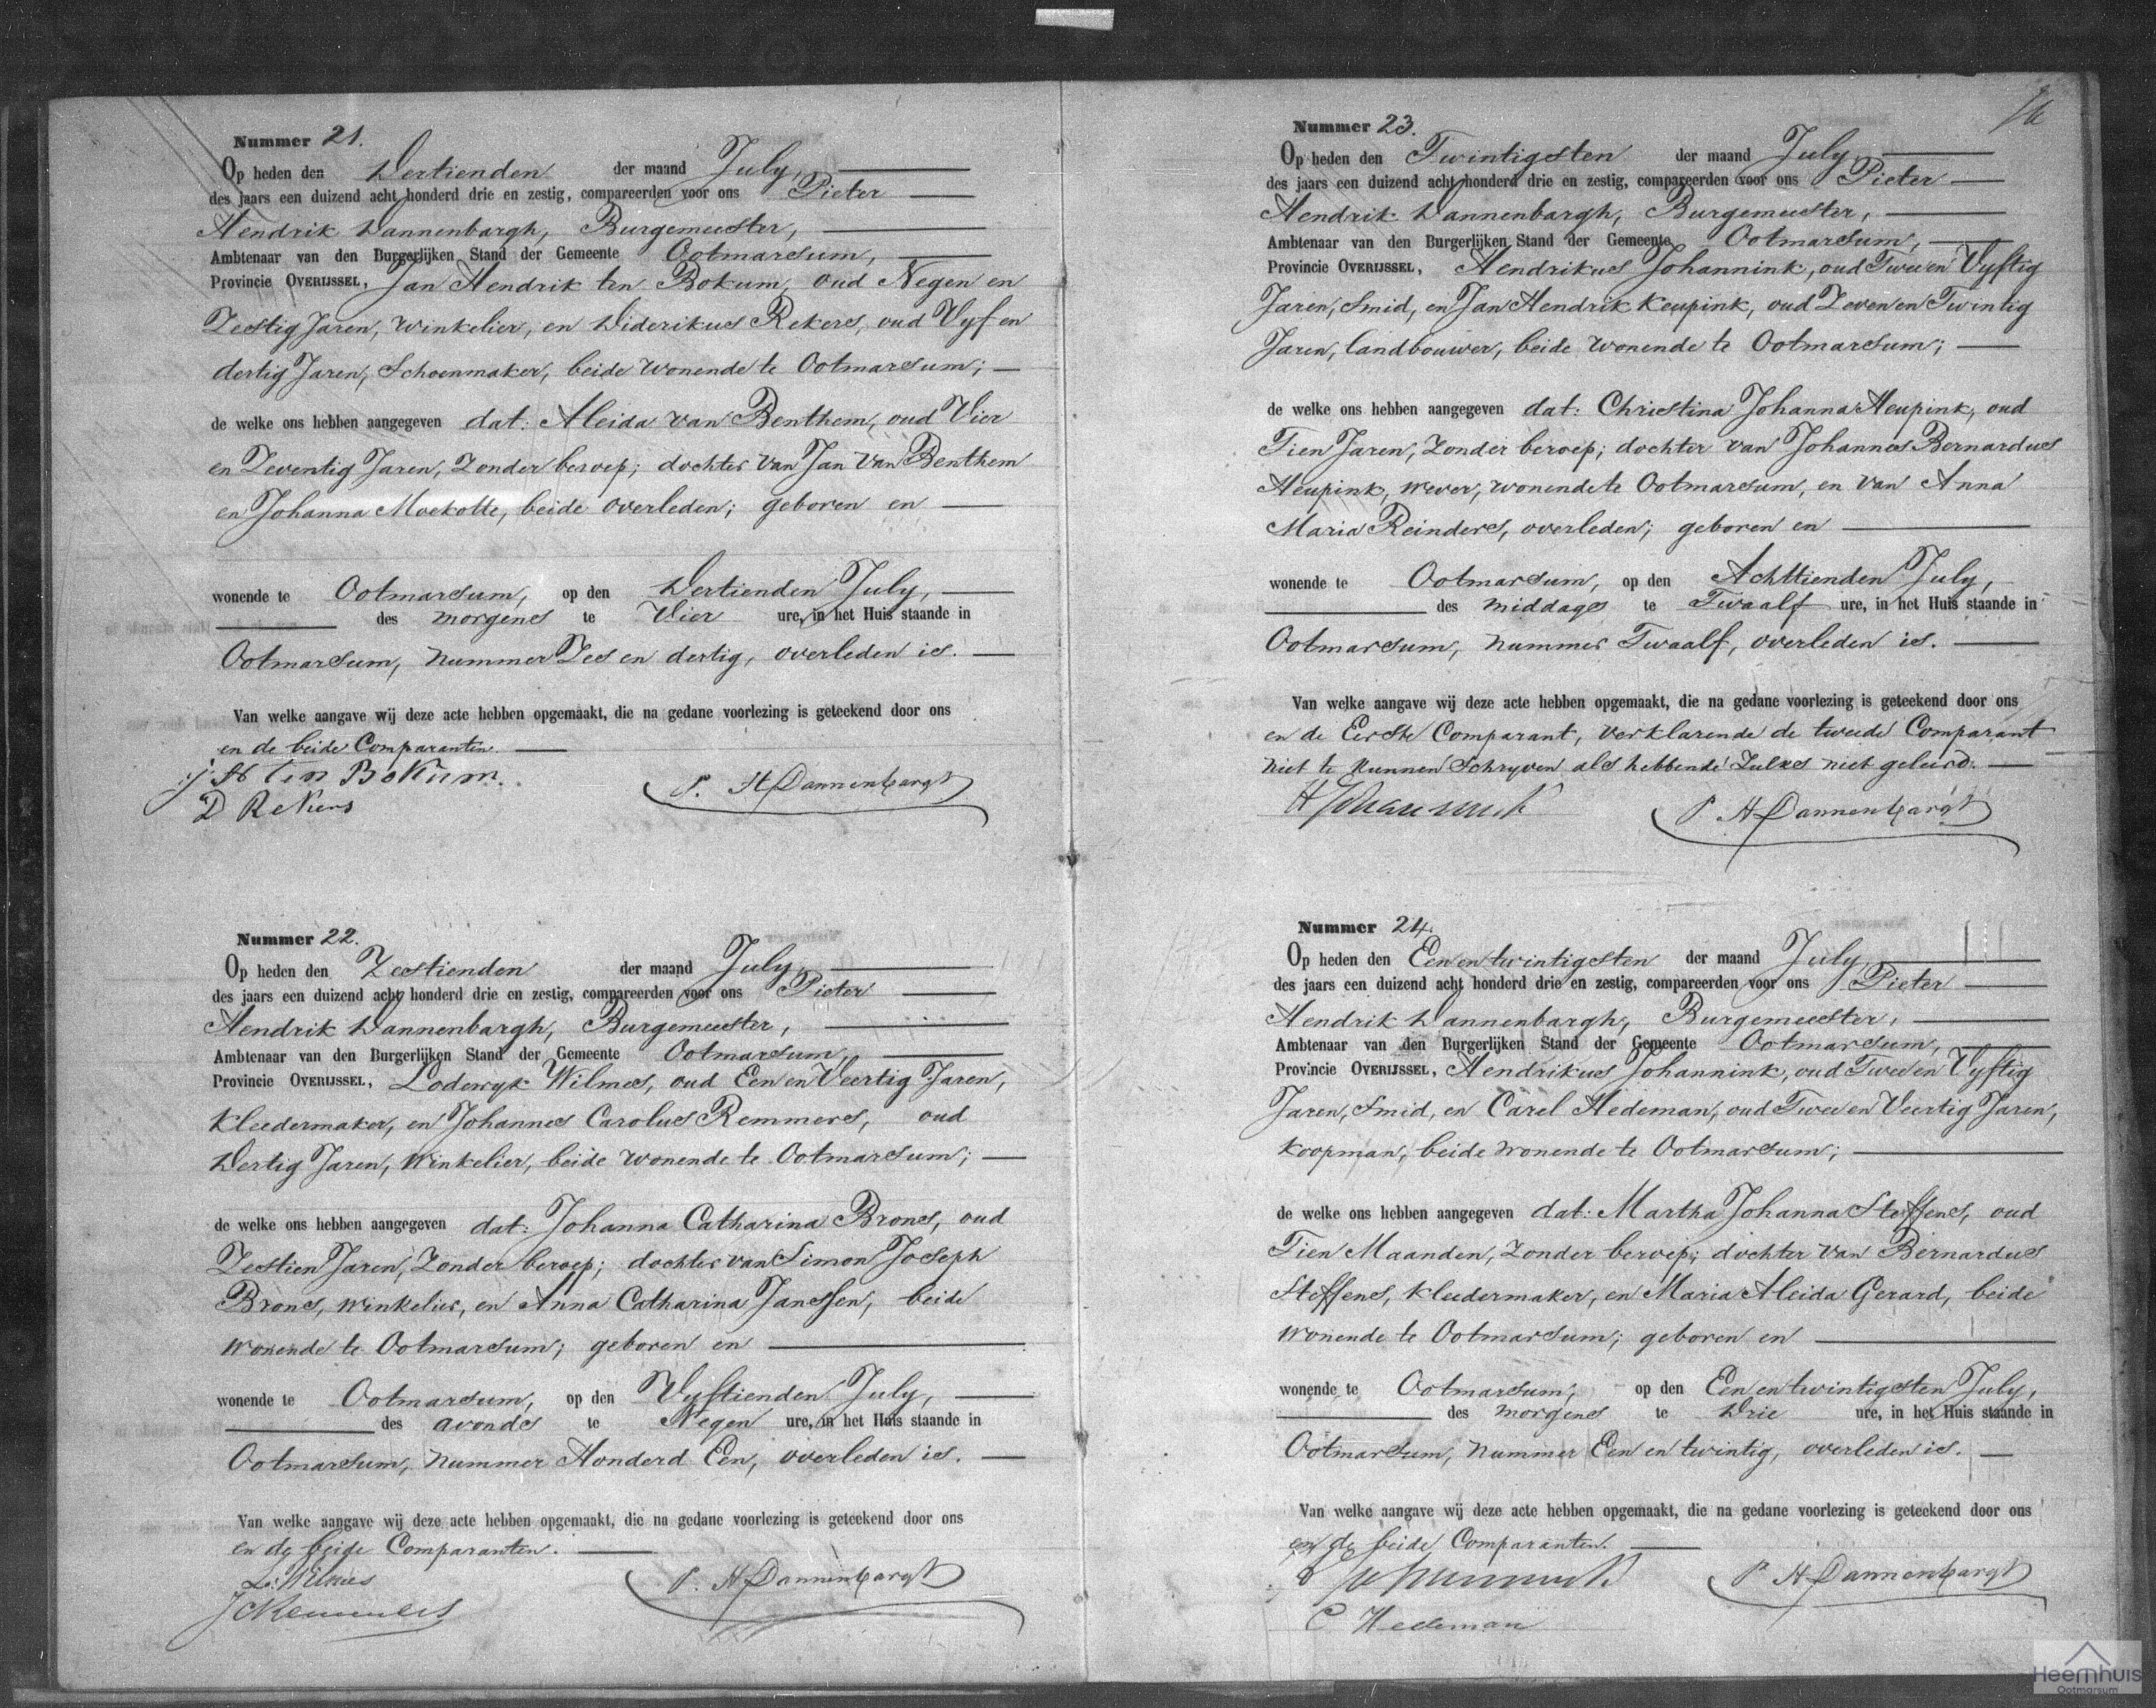 Nummer 21.
Op heden den Dertienden der maand July,
des jaars een duizend acht honderd drie en zestig, compareerden voor ons Pieter
Hendrik Dannenbargh, Burgemeester,
Ambtenaar van den Burgerlijken Stand der Gemeente Ootmarsum,
Provincie OVERIJSSEL, Jan Hendrik ten Bokum, oud Negen en
Zestig Jaren, Winkelier, en Diderikus Rekers, oud Vyf en
dertig Jaren, Schoenmaker, beide wonende te Ootmarsum;
de welke ons hebben aangegeven dat: Aleida van Benthem, oud Vier
en Zeventig Jaren, Zonder beroep; dochter van Jan van Benthem
en Johanna Moekotte, beide overleden; geboren en
wonende te Ootmarsum, op den Dertienden July,
des morgens te Vier ure, in het Huis staande in
Ootmarsum, nummer Zes en dertig, overleden is.
Van welke aangave wij deze acte hebben opgemaakt, die na gedane voorlezing is geteekend door ons
en de beide Comparanten.
J H ten Bokum.
P. H Dannenbargh
D Rekers
Nummer 22.
Op heden den Zestienden der maand July,
des jaars een duizend acht honderd drie en zestig, compareerden voor ons Pieter
Hendrik Dannenbargh, Burgemeester,
Ambtenaar van den Burgerlijken Stand der Gemeente Ootmarsum,
Provincie OVERIJSSEL, Lodewyk Wilmes, oud Een en Veertig Jaren,
Kleedermaker, en Johannes Carolus Remmers, oud
Dertig Jaren, Winkelier, beide wonende te Ootmarsum;
de welke ons hebben aangegeven dat: Johanna Catharina Brons, oud
Zestien Jaren, Zonder beroep; dochter van Simon Joseph
Brons, winkelier, en Anna Catharina Janssen, beide
wonende te Ootmarsum; geboren en
wonende te Ootmarsum, op den Vyftienden July,
des avonds te Negen ure, in het Huis staande in
Ootmarsum, nummer Honderd Een, overleden is.
Van welke aangave wij deze acte hebben opgemaakt, die na gedane voorlezing is geteekend door ons
en de beide Comparanten.
L. Wilmes
P. H Dannenbargh
J C Remmers
Nummer 23.
Op heden den Twintigsten der maand July,
des jaars een duizend acht honderd drie en zestig, compareerden voor ons Pieter
Hendrik Dannenbargh, Burgemeester,
Ambtenaar van den Burgerlijken Stand der Gemeente Ootmarsum,
Provincie OVERIJSSEL, Hendrikus Johannink, oud Twee en Vyftig
Jaren, Smid, en Jan Hendrik Keupink, oud Zeven en Twintig
Jaren, landbouwer, beide wonende te Ootmarsum;
de welke ons hebben aangegeven dat: Christina Johanna Heupink, oud
Tien Jaren, Zonder beroep; dochter van Johannes Bernardus
Heupink, wever, wonende te Ootmarsum, en van Anna
Maria Reinders, overleden; geboren en
wonende te Ootmarsum, op den Achttienden July,
des middags te Twaalf ure, in het Huis staande in
Ootmarsum, nummer Twaalf, overleden is.
Van welke aangave wij deze acte hebben opgemaakt, die na gedane voorlezing is geteekend door ons
en de Eerste Comparant, verklarende de tweede Comparant
niet te kunnen Schryven als hebbende Zulks niet geleerd.
H Johannink
P H Dannenbargh
Nummer 24.
Op heden den Een en twintigsten der maand July,
des jaars een duizend acht honderd drie en zestig, compareerden voor ons Pieter
Hendrik Dannenbargh, Burgemeester,
Ambtenaar van den Burgerlijken Stand der Gemeente Ootmarsum,
Provincie OVERIJSSEL, Hendrikus Johannink, oud Twee en Vyftig
Jaren, Smid, en Carel Hedeman, oud Twee en Veertig Jaren,
Koopman, beide wonende te Ootmarsum;
de welke ons hebben aangegeven dat: Martha Johanna Steffens, oud
Tien Maanden, Zonder beroep; dochter van Bernardus
Steffens, Kleedermaker, en Maria Aleida Gerard, beide
wonende te Ootmarsum; geboren en
wonende te Ootmarsum, op den Een en twintigsten July,
des morgens te Drie ure, in het Huis staande in
Ootmarsum, nummer Een en twintig, overleden is.
Van welke aangave wij deze acte hebben opgemaakt, die na gedane voorlezing is geteekend door ons
en de beide Comparanten.
Johannink
P H Dannenbargh
C Hedeman
Heemhuis
Ootmarsum